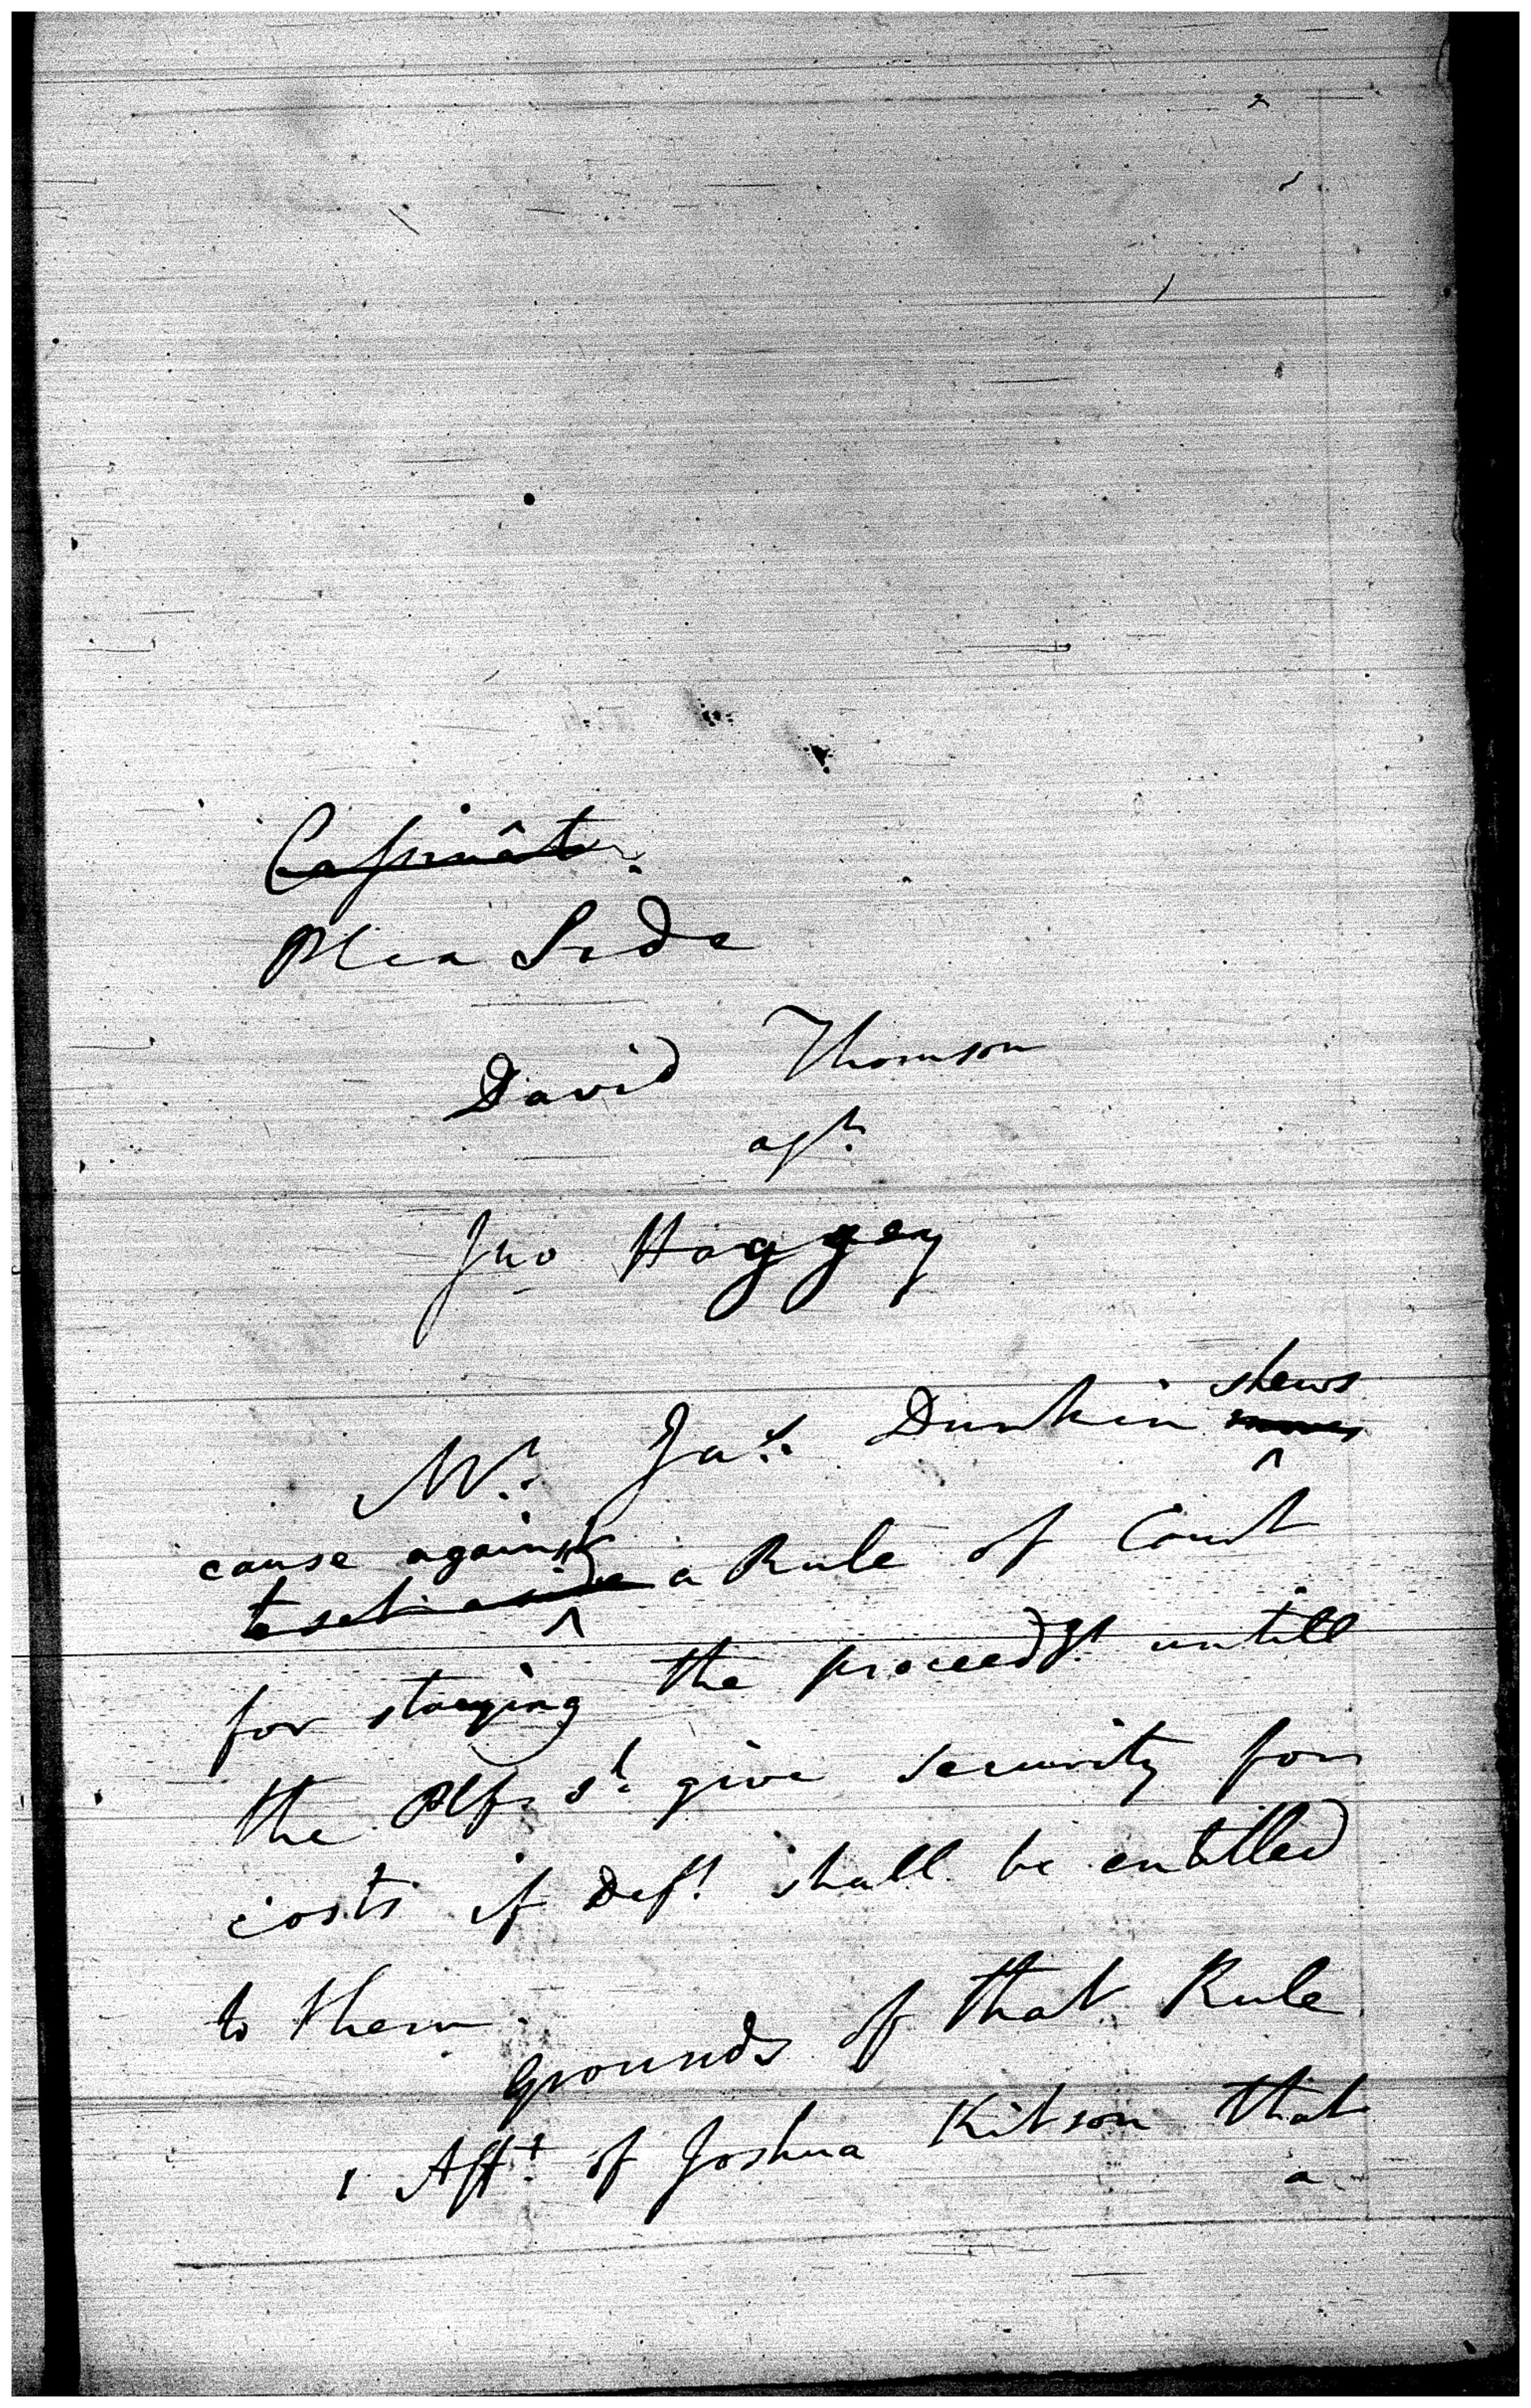 Plea Side
David Thomson
agt.
Jno Haggey
shews
Mr. Jas. Dunkin moves
cause against
to set aside a Rule of Court
for staying the proceedgs. untill
the Plf. sd. give security for
costs if Deft. shall be entitled
to them.
grounds of that Rule
1 Afft. of Joshua Kitson that
a